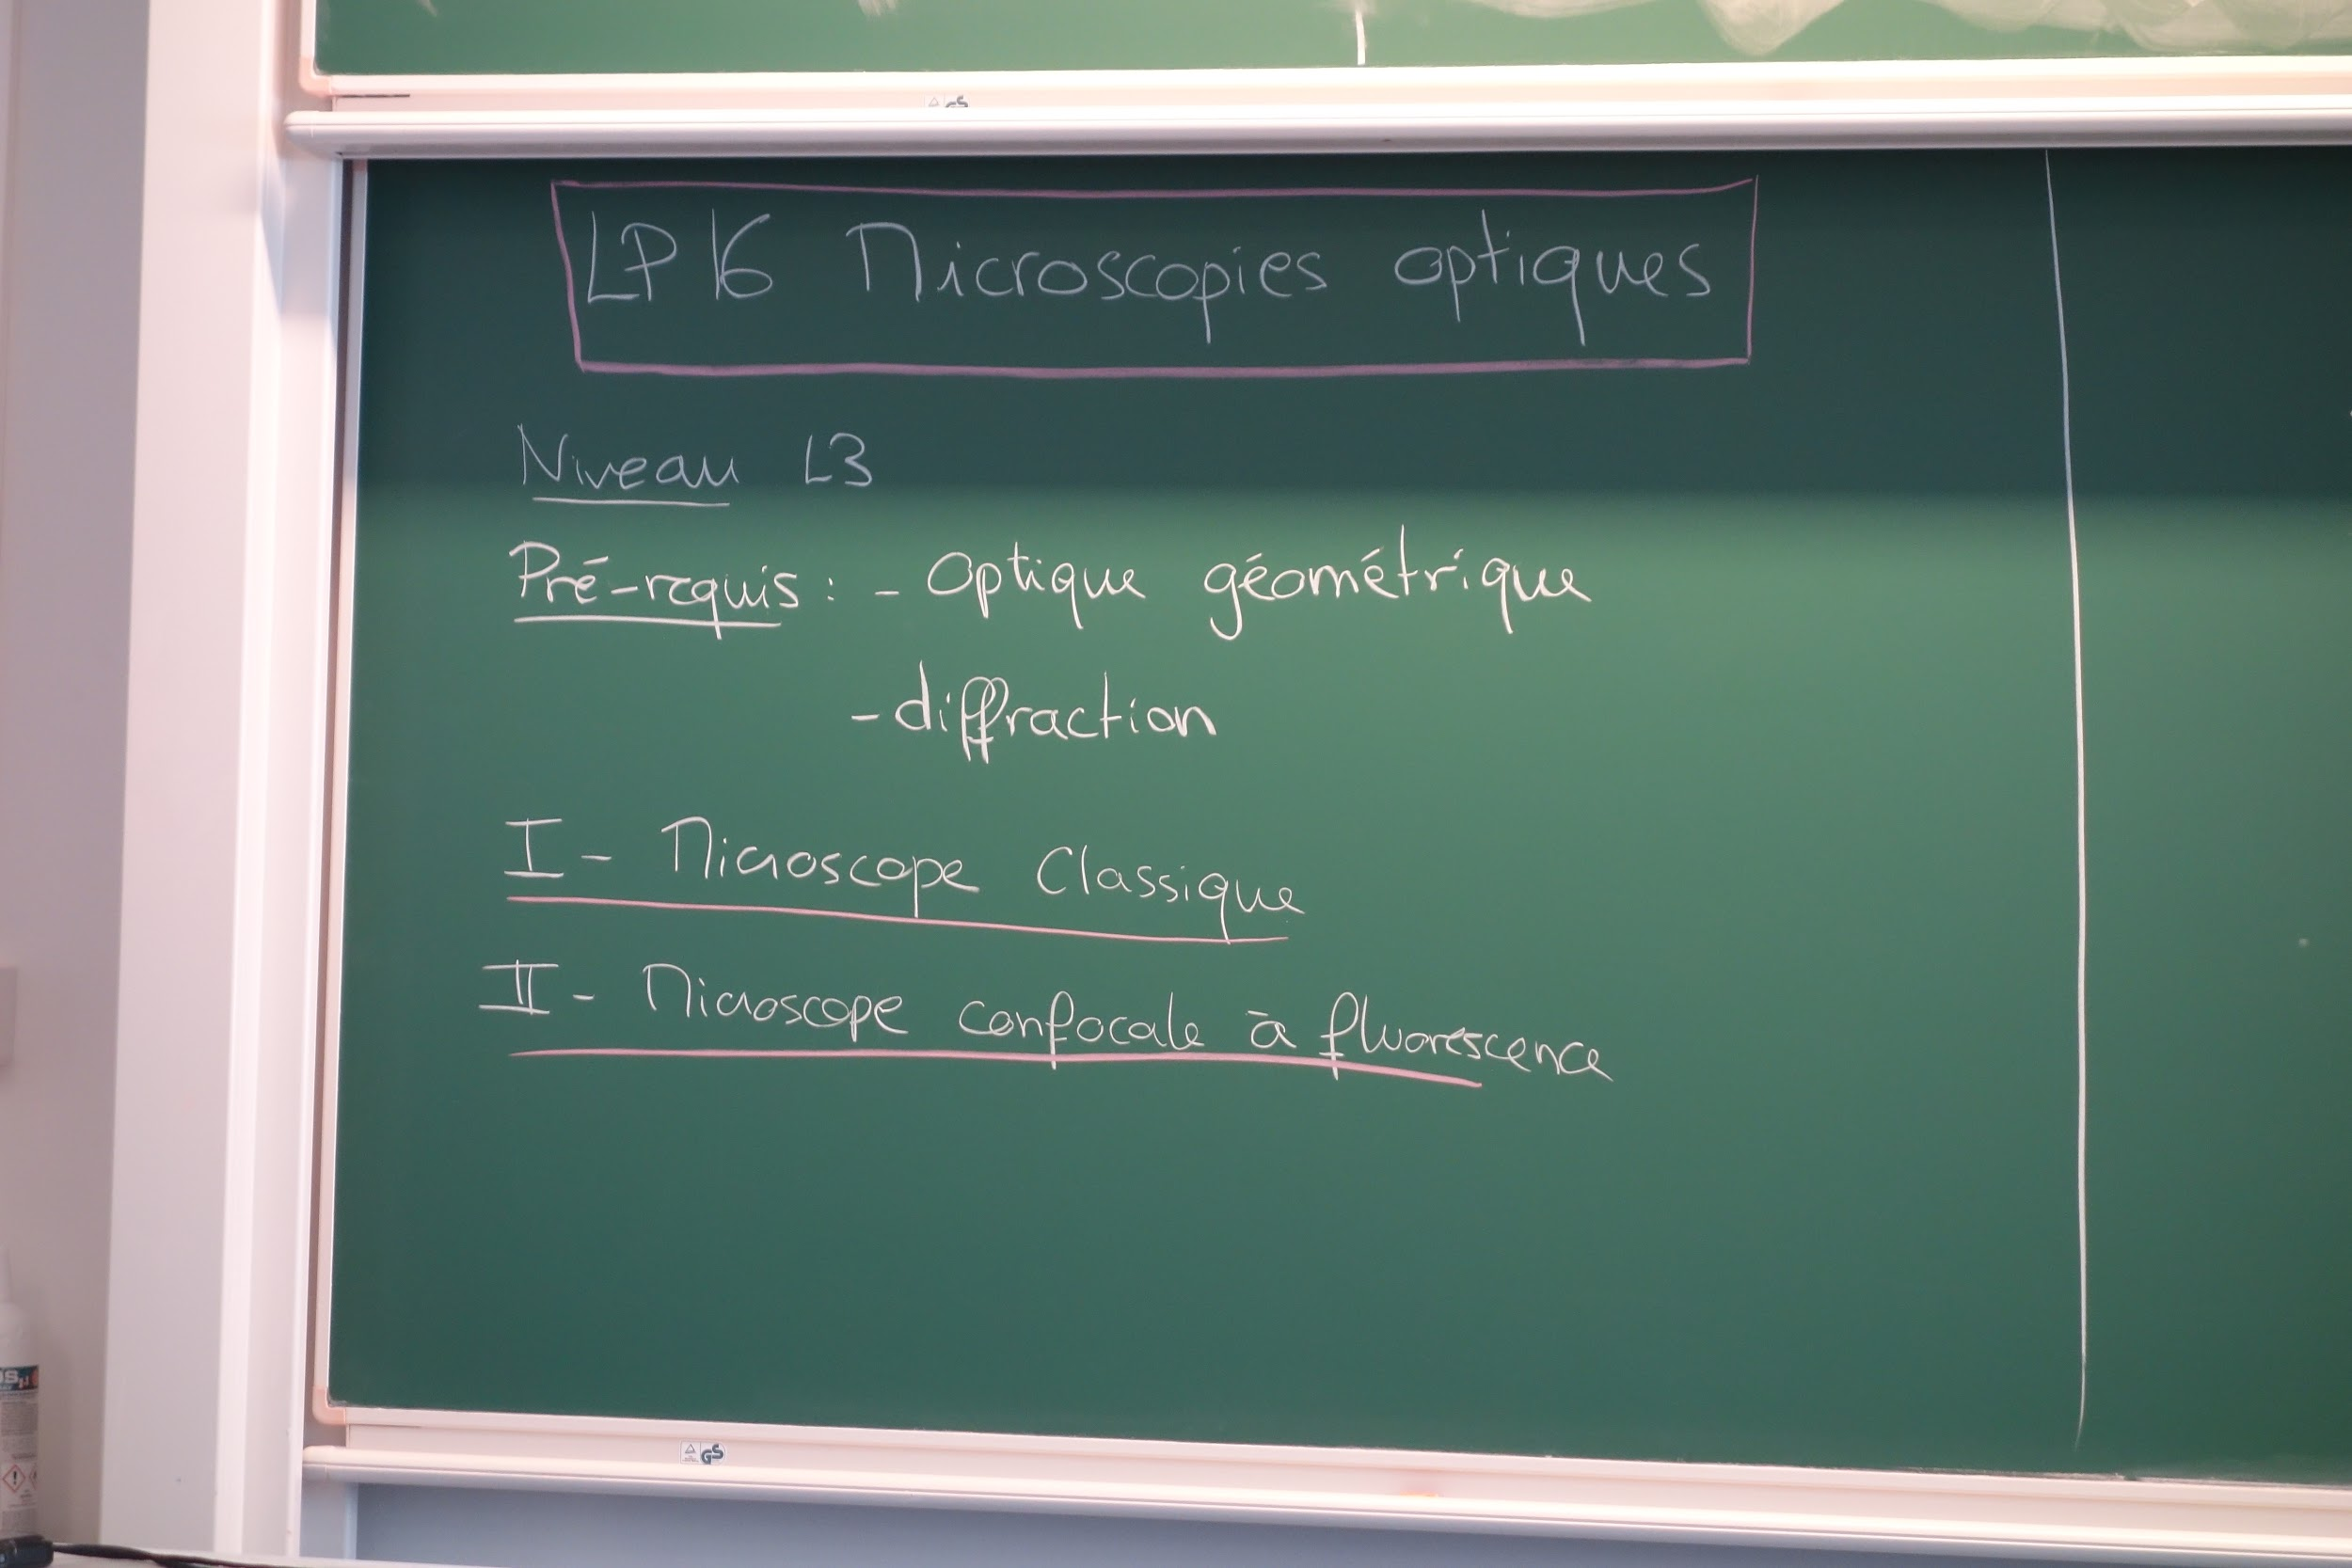 LP 16 Microscopies optiques
Niveau L3
Pré-requis : - Optique géométrique
- diffraction
I - Microscope Classique
II - Microscope confocale à fluorescence
GS
GS